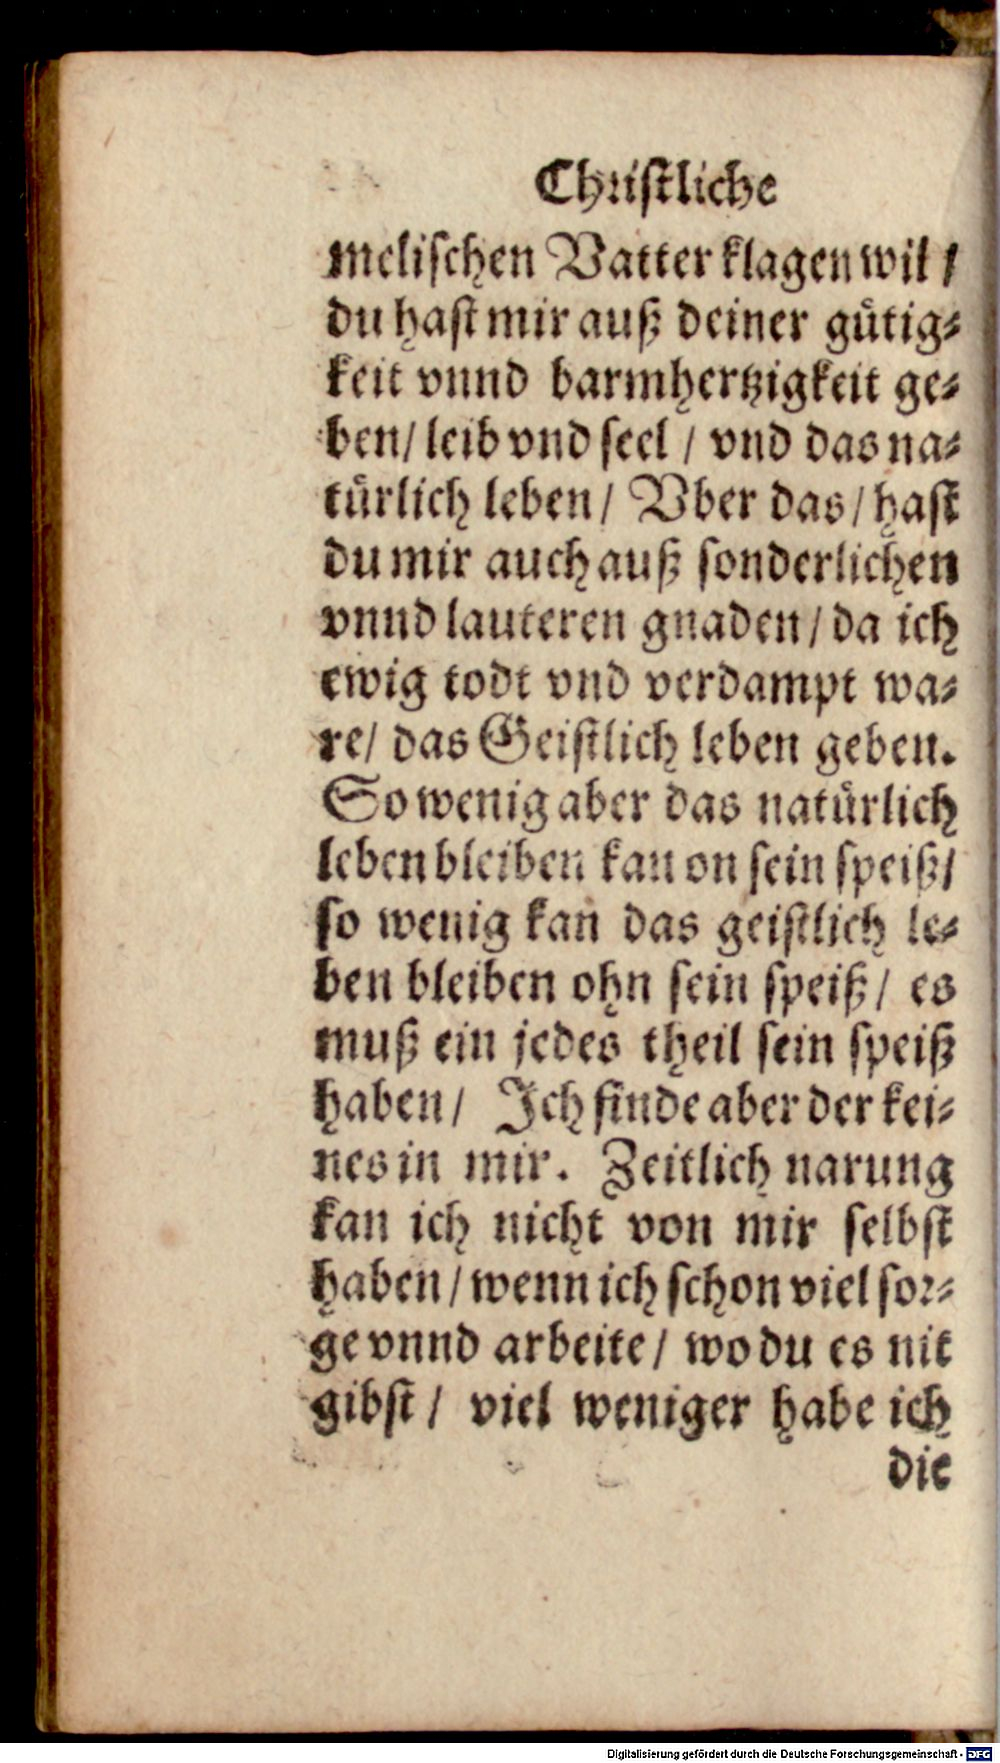 Christliche
melischen Vatter klagen wil /
du hast mir auß deiner gütig-
keit vnnd barmhertzigkeit ge-
ben / leib vnd seel / vnd das na-
türlich leben / Vber das / hast
du mir auch auß sonderlichen
vnnd lauteren gnaden / da ich
ewig todt vnd verdampt wa-
re / das Geistlich leben geben.
So wenig aber das natürlich
leben bleiben kan on sein speiß /
so wenig kan das geistlich le-
ben bleiben ohn sein speiß / es
muß ein jedes theil sein speiß
haben / Ich finde aber der kei-
nes in mir. Zeitlich narung
kan ich nicht von mir selbst
haben / wenn ich schon viel sor-
ge vnnd arbeite / wo du es nit
gibst / viel weniger habe ich
die
Digitalisierung gefördert durch die Deutsche Forschungsgemeinschaft - DFG